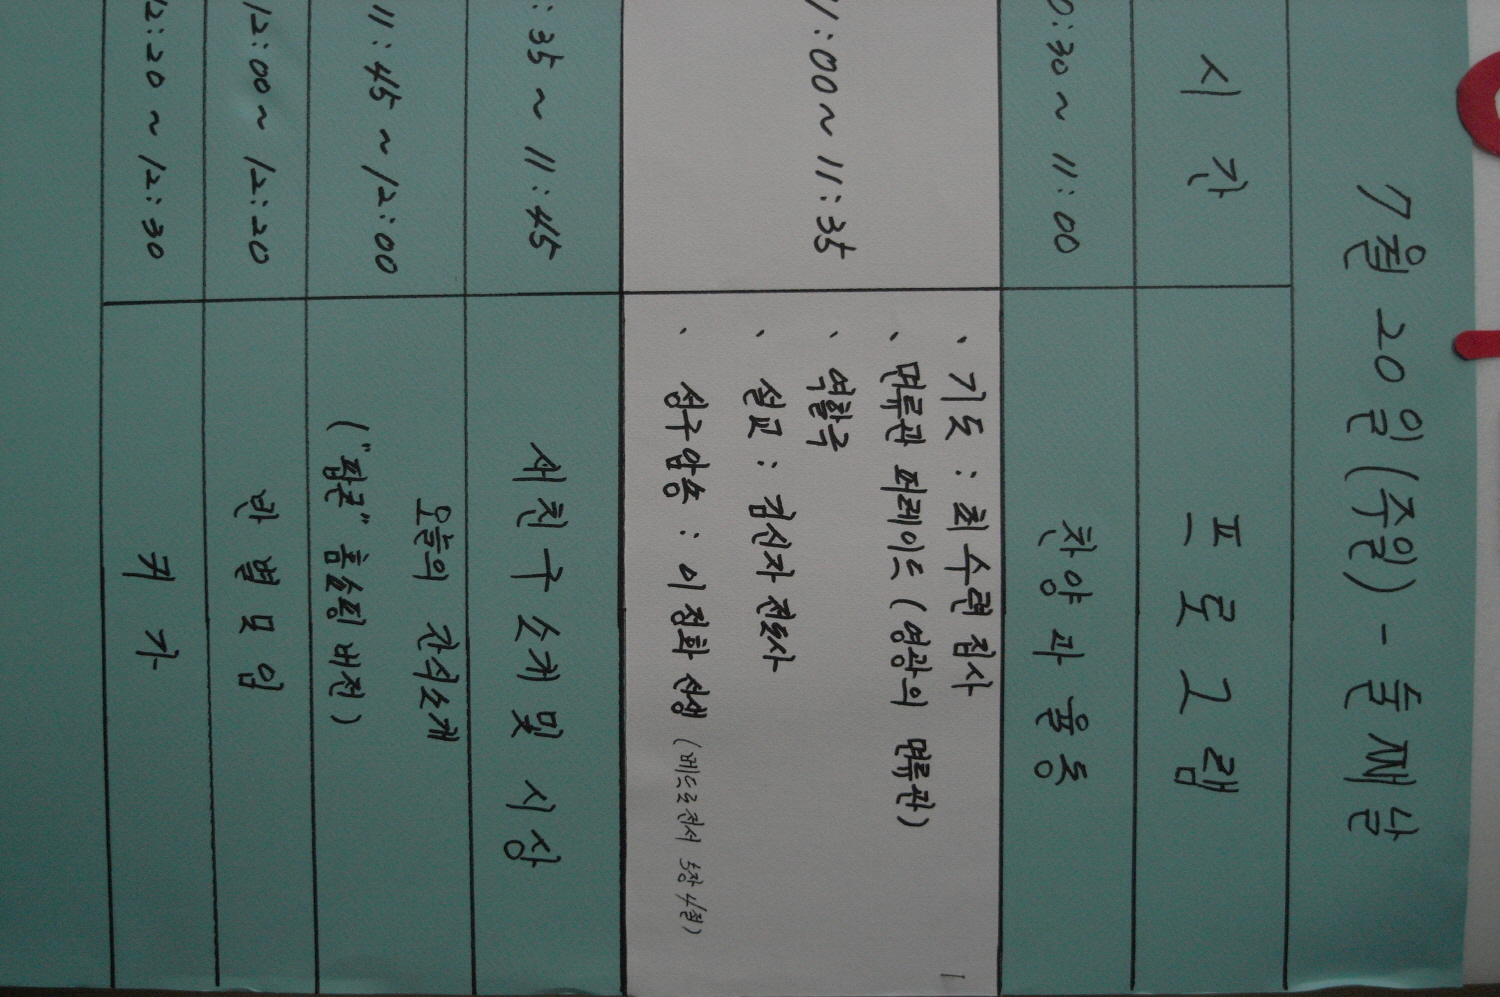 7월 20일(주일) - 둘째날
시간 프로그램
0:30 ~ 11:00 찬양과 율동
11:00 ~ 11:35
· 기도 : 최수련 집사
· 면류관 퍼레이드 (영광의 면류관)
· 역할극
· 설교 : 김신자 전도사
· 성구암송 : 이정화 선생 (베드로전서 5장 4절)
:35 ~ 11:45 새친구 소개 및 시상
11:45 ~ 12:00 오늘의 간식소개
("팝콘" 홈쇼핑 버전)
12:00 ~ 12:20 반별모임
12:20 ~ 12:30 귀가